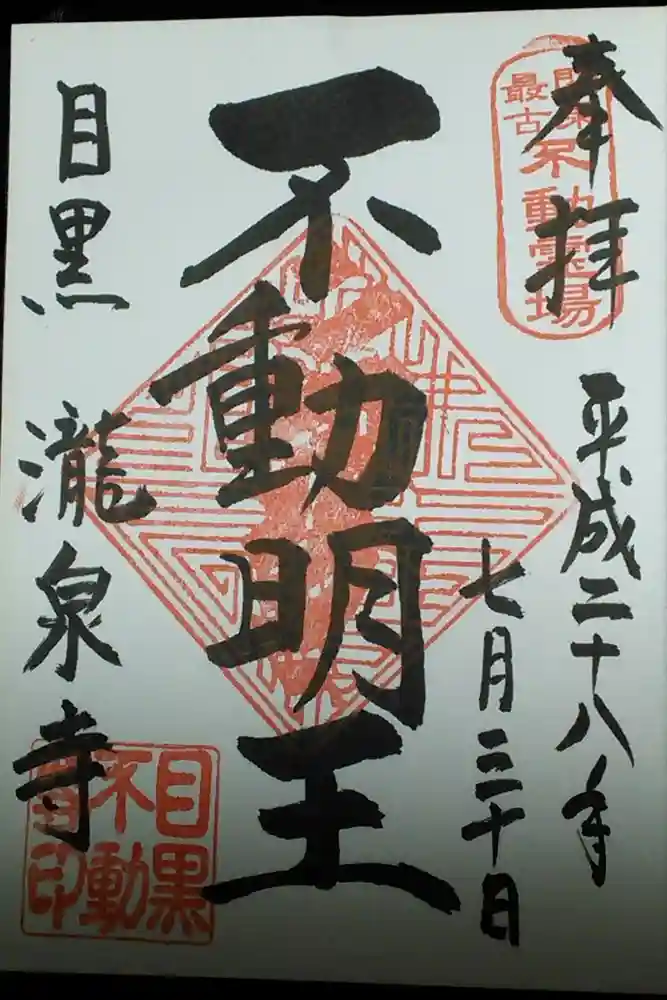 奉拝
関東
最古
不動霊場
平成二十八年
七月三十日
不動明王
目黒 瀧泉寺
目黒
不動
印